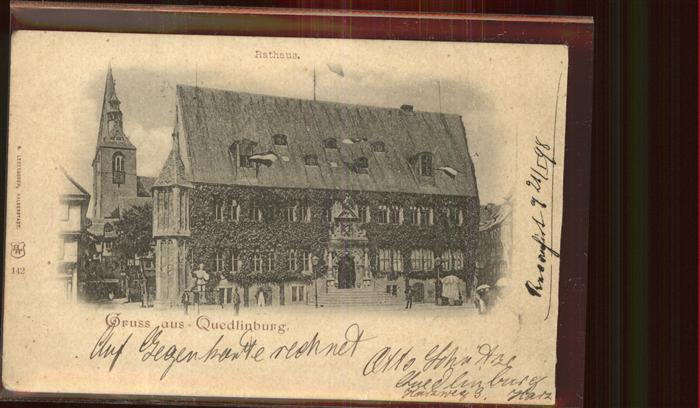 Rathaus.
142
Gruss aus Quedlinburg.
Auf Gegenkarte rechnet
Otto Schütze
Quedlinburg
Harzweg 3. Harz
21/I 98